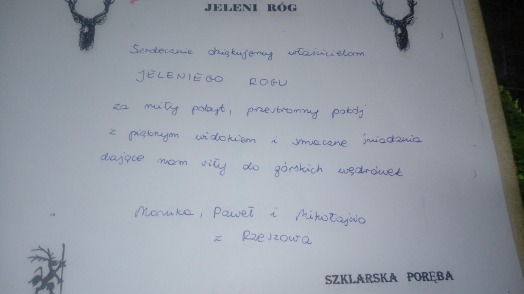 JELENI RÓG
Serdecznie dziękujemy właścicielom
JELENIEGO ROGU
za miły pobyt, przestronny pokój
z pięknym widokiem i smaczne śniadania
dające nam siły do górskich wędrówek
Monika, Paweł i Mikołajno
z Rzeszowa
SZKLARSKA PORĘBA